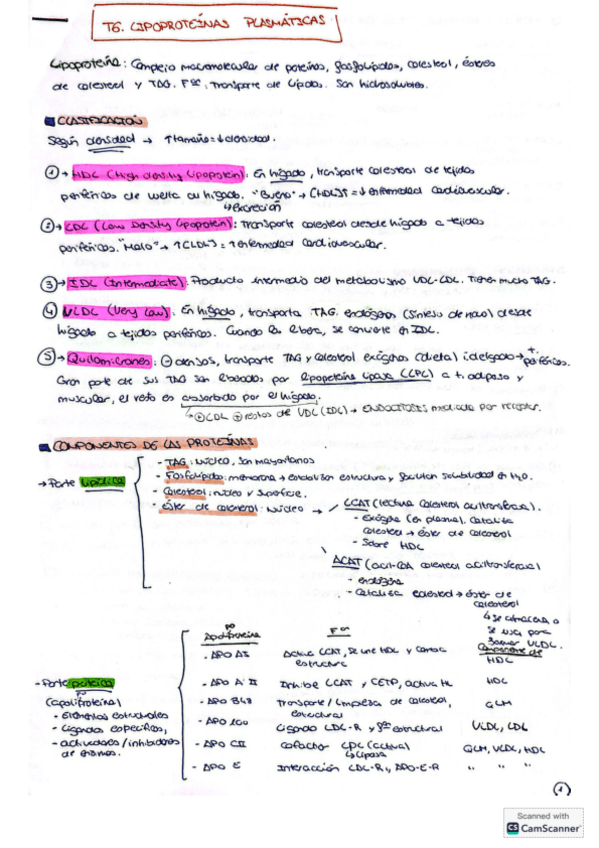 T6. LIPOPROTEÍNAS PLASMÁTICAS
Lipoproteína: Complejo macromolecular de proteínas, fosfolípidos, colesterol, ésteres
de colesterol y TAG. Fºⁿ: Transporte de lípidos. Son hidrosolubles.
CLASIFICACIÓN
Según densidad → ↑tamaño = ↓densidad.
1 → HDL (High density Lipoprotein): En hígado, transporte colesterol de tejidos
periféricos de vuelta al hígado. "Bueno" → [HDL]↑ = ↓ enfermedad cardiovascular.
↳ excreción
2 → LDL (Low Density Lipoprotein): Transporte colesterol desde hígado a tejidos
periféricos. "Malo" → ↑[LDL] = ↑ enfermedad cardiovascular.
3 → IDL (Intermediate): Producto intermedio del metabolismo VLDL-LDL. Tiene mucho TAG.
4 VLDL (Very Low): En hígado, transporta TAG endógenos (síntesis de novo) desde
hígado a tejidos periféricos. Cuando los libera, se convierte en IDL.
5 → Quilomicrones: ⊖ densos, transporte TAG y colesterol exógenos (dieta) i.delgado → t. periféricos.
Gran parte de sus TAG son liberados por lipoproteína lipasa (LPL) a t. adiposo y
muscular, el resto es absorbido por el hígado.
↳ ⊕ LDL ⊕ restos de VLDL (IDL) → ENDOCITOSIS mediada por receptor.
COMPONENTES DE LAS PROTEÍNAS
→ Parte lipídica
- TAG: núcleo, son mayoritarios
- Fosfolípido: membrana → estabilizan estructura y facilitan solubilidad en H₂O.
- Colesterol: núcleo y superficie.
- Éster de colesterol: núcleo →
LCAT (lecitina colesterol aciltransferasa).
- Exógena (en plasma). Cataliza
colesterol → éster de colesterol
- Sobre HDL
ACAT (acil-CoA colesterol aciltransferasa)
- endógena
- Cataliza colesterol → éster de
colesterol
↳ se almacena o
se usa para
formar VLDL.
- Parte proteica
(apolipoproteína)
- Elementos estructurales
- Ligandos específicos,
- activadores/inhibidores
de enzimas.
Apolipoproteína Fºⁿ Componente de
- APO AI Activa LCAT, se une HDL y ABCA1 estructura HDL
- APO A II Inhibe LCAT y CETP, activa HL HDL
- APO B48 Transporte/limpieza de colesterol, estructural QLM
- APO 100 Ligando LDL-R y Fºⁿ estructural VLDL, LDL
- APO CII Cofactor LPL (activa) QLM, VLDL, HDL
↳ lipasa
- APO E Interacción LDL-R, APO-E-R " " "
1
Scanned with
CS CamScanner